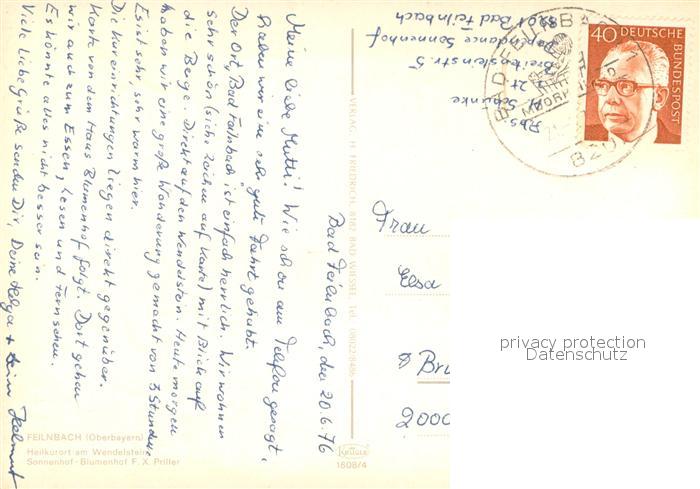 Bad Feilnbach, den 20.6.76
Meine liebe Mutti! Wie schon am Telefon gesagt,
haben wir eine sehr gute Fahrt gehabt.
Der Ort, Bad Failnbach ist einfach herrlich. Wir wohnen
sehr schön (siehe Zeichen auf Karte) mit Blick auf
die Berge. Direkt auf den Wendelstein. Heute morgen
haben wir eine große Wanderung gemacht von 3 Stunden.
Es ist sehr, sehr warm hier.
Die Kureinrichtungen liegen direkt gegenüber.
Karte von dem Haus Blumenhof folgt. Dort gehen
wir auch zum Essen, Lesen und Fernsehen.
Es könnte alles nicht besser sein.
Viele liebe Grüße senden Dir, Deine Helga + Dein Helmut
VERLAG: H. FRIEDRICH, 8182 BAD WIESSEE, Tel. 08022/8496
Abs.
Schünke
z. Zt.
Breitensteinstr. 5
Dependance Sonnenhof
8201 Bad Feilnbach
40 DEUTSCHE
BUNDESPOST
BAD FEILNBACH
820
Frau
Elsa
2000
privacy protection
Datenschutz
FEILNBACH (Oberbayern)
Heilkurort am Wendelstein
Sonnenhof - Blumenhof F. X. Priller
Krüger
1608/4